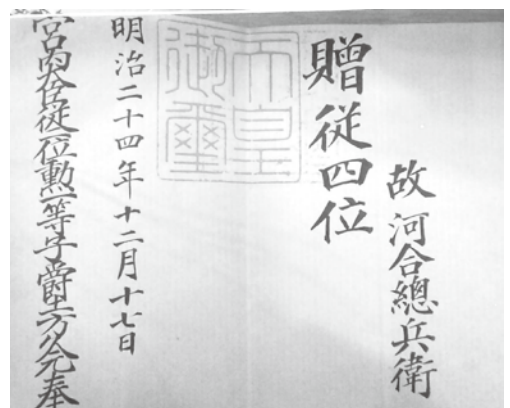 故河合總兵衛
贈従四位
天皇御璽
明治二十四年十二月十七日
宮内大臣従一位勲一等子爵土方久元奉